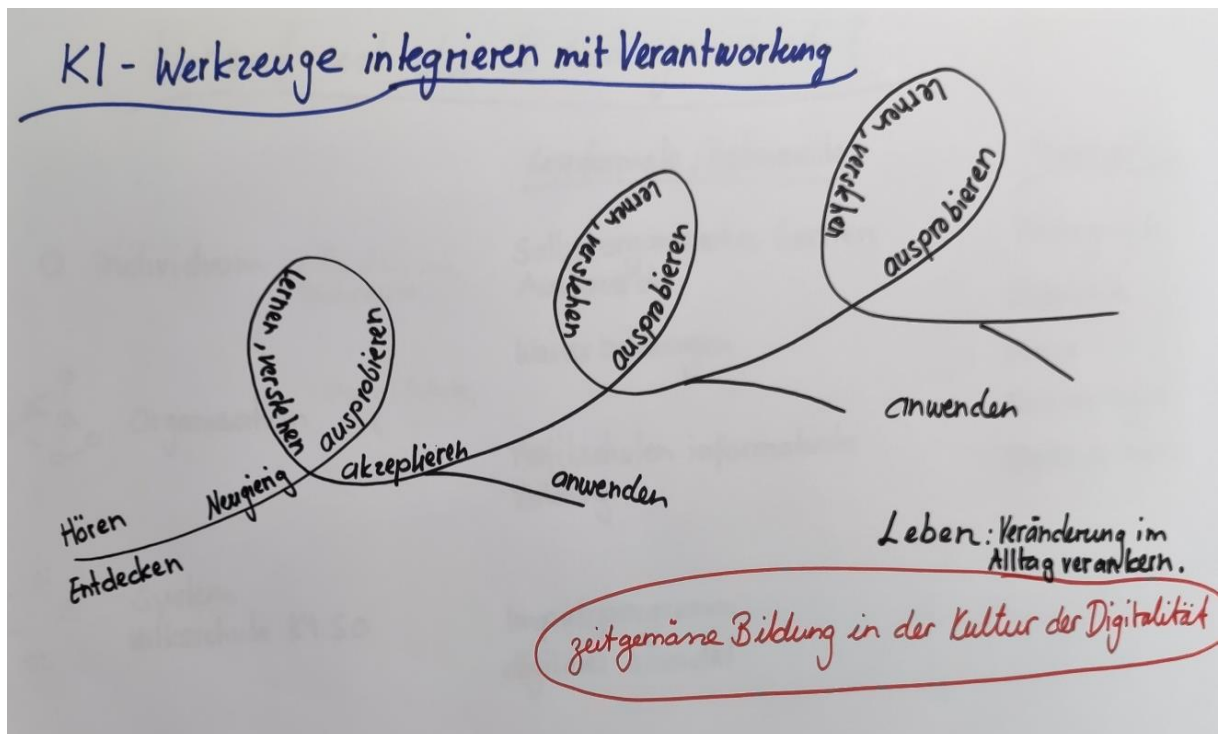 KI - Werkzeuge integrieren mit Verantwortung
Hören
Entdecken
Neugierig
lernen, verstehen
ausprobieren
akzeptieren
anwenden
lernen, verstehen
ausprobieren
anwenden
lernen, verstehen
ausprobieren
Leben: Veränderung im
Alltag verankern.
zeitgemässe Bildung in der Kultur der Digitalität